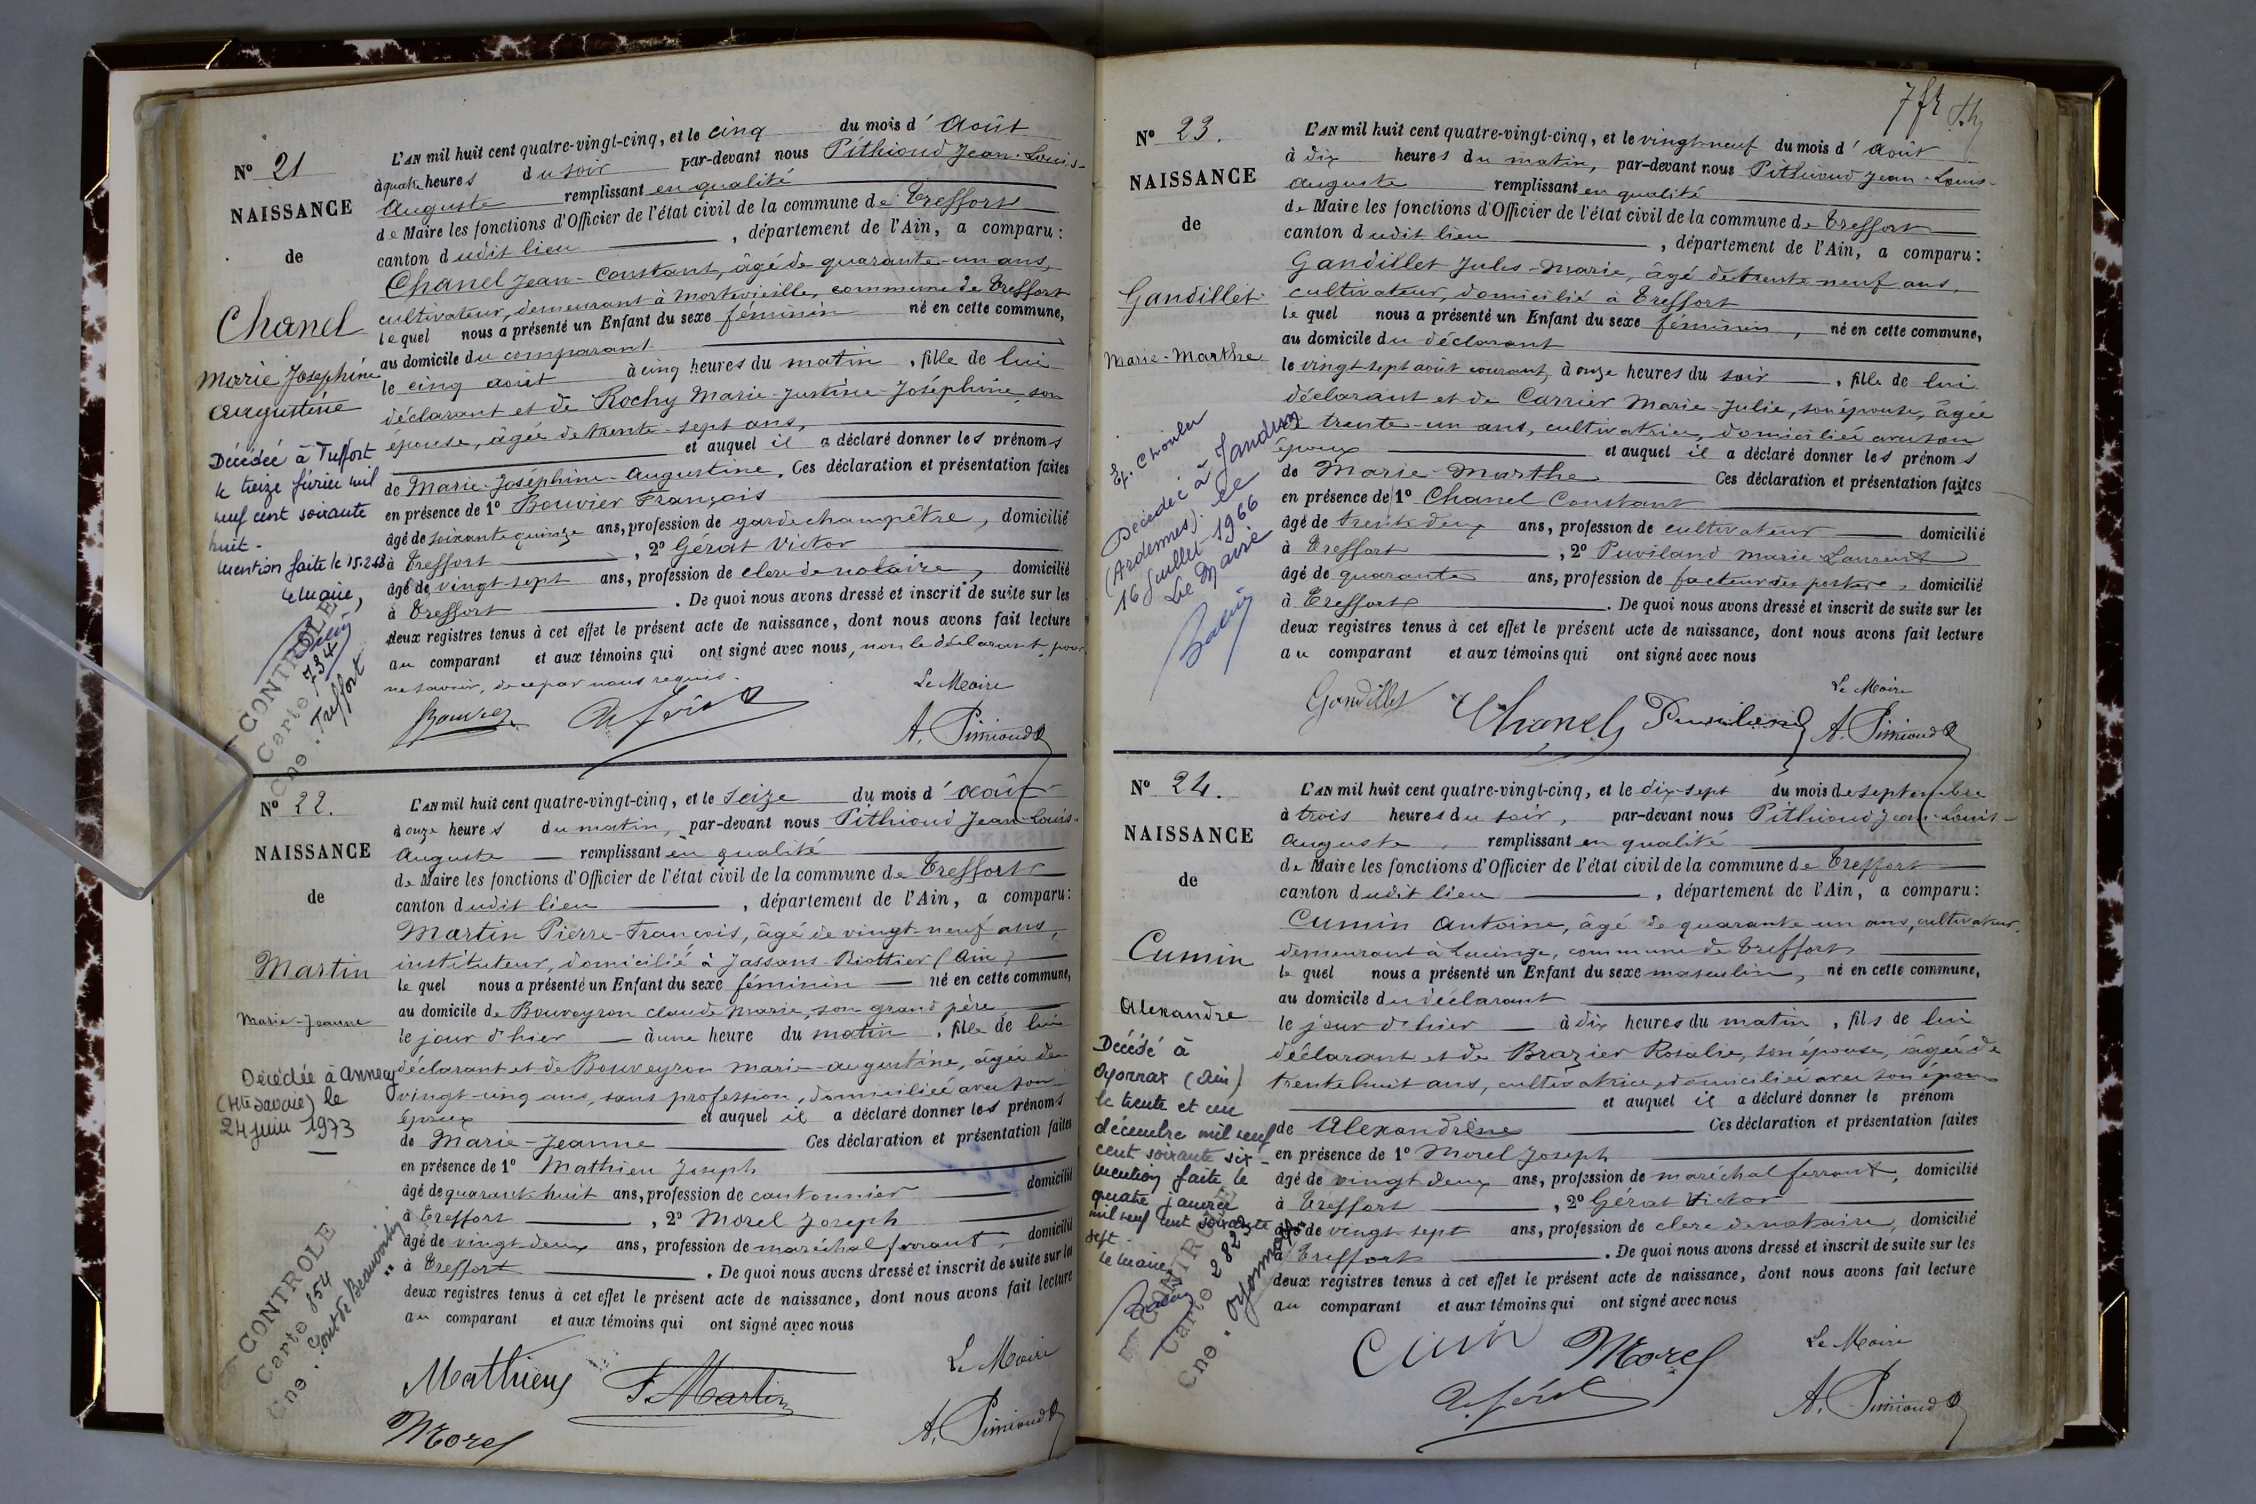 Nº 21
NAISSANCE
de
Chanel
Marie Joséphine
Augustine
Décédée à Treffort
le treize février mil
neuf cent soixante
huit -
Mention faite le 15.2.68
le Maire,
CONTROLE
Carte 734
Cne. Treffort
L'AN mil huit cent quatre-vingt-cinq, et le cinq du mois d'Août
à quatre heures du soir par-devant nous Pithioud Jean-Louis-
Auguste remplissant en qualité
de Maire les fonctions d'Officier de l'état civil de la commune de Treffort
canton dudit lieu, département de l'Ain, a comparu:
Chanel Jean-Constant, âgé de quarante-un ans,
cultivateur, demeurant à Montevieille, commune de Treffort
lequel nous a présenté un Enfant du sexe féminin né en cette commune,
au domicile du comparant
le cinq août à cinq heures du matin, fille de lui
déclarant et de Rochy Marie-Justine-Joséphine, son
épouse, âgée de trente-sept ans,
et auquel il a déclaré donner les prénoms
de Marie-Joséphine-Augustine. Ces déclaration et présentation faites
en présence de 1º Bouvier François
âgé de soixante quinze ans, profession de garde champêtre, domicilié
à Treffort, 2º Gérat Victor
âgé de vingt-sept ans, profession de clerc de notaire, domicilié
à Treffort. De quoi nous avons dressé et inscrit de suite sur les
deux registres tenus à cet effet le présent acte de naissance, dont nous avons fait lecture
au comparant et aux témoins qui ont signé avec nous, non le déclarant, pour
ne savoir, de ce par nous requis.
Le Maire
Bouvier
A. Pithioud
Nº 22.
NAISSANCE
de
Martin
Marie-Jeanne
Décédée à Annecy
(Hte Savoie) le
24 juin 1973
CONTROLE
Carte 854
Cne. Pont de Beauvoisin
L'AN mil huit cent quatre-vingt-cinq, et le seize du mois d'août
à onze heures du matin, par-devant nous Pithioud Jean-Louis-
Auguste remplissant en qualité
de Maire les fonctions d'Officier de l'état civil de la commune de Treffort
canton dudit lieu, département de l'Ain, a comparu:
Martin Pierre-François, âgé de vingt-neuf ans,
instituteur, domicilié à Jassans-Riottier (Ain)
lequel nous a présenté un Enfant du sexe féminin né en cette commune,
au domicile de Bouveyron Claude Marie, son grand père
le jour d'hier à une heure du matin, fille de lui
déclarant et de Bouveyron Marie-Augustine, âgée de
vingt-cinq ans, sans profession, domiciliée avec son
époux et auquel il a déclaré donner les prénoms
de Marie-Jeanne Ces déclaration et présentation faites
en présence de 1º Mathieu Joseph
âgé de quarante-huit ans, profession de cantonnier domicilié
à Treffort, 2º Morel Joseph
âgé de vingt-deux ans, profession de maréchal ferrant, domicilié
à Treffort. De quoi nous avons dressé et inscrit de suite sur les
deux registres tenus à cet effet le présent acte de naissance, dont nous avons fait lecture
au comparant et aux témoins qui ont signé avec nous
Mathieu P. Martin Le Maire
Morel A. Pithioud
Nº 23.
NAISSANCE
de
Gandillet
Marie-Marthe
Décédée à Jandun
(Ardennes). le
16 Juillet 1966
Le Maire
L'AN mil huit cent quatre-vingt-cinq, et le vingt-neuf du mois d'août
à dix heures du matin, par-devant nous Pithioud Jean-Louis-
Auguste remplissant en qualité
de Maire les fonctions d'Officier de l'état civil de la commune de Treffort
canton dudit lieu, département de l'Ain, a comparu:
Gandillet Jules-Marie, âgé de trente-neuf ans,
cultivateur, domicilié à Treffort
lequel nous a présenté un Enfant du sexe féminin, né en cette commune,
au domicile du déclarant
le vingt-sept août courant, à onze heures du soir, fille de lui
déclarant et de Carrier Marie-Julie, son épouse, âgée
de trente-un ans, cultivatrice, domiciliée avec son
époux et auquel il a déclaré donner les prénoms
de Marie-Marthe Ces déclaration et présentation faites
en présence de 1º Chanel Constant
âgé de trente deux ans, profession de cultivateur domicilié
à Treffort, 2º Puviland Marie-Laurent
âgé de quarante ans, profession de facteur des postes, domicilié
à Treffort. De quoi nous avons dressé et inscrit de suite sur les
deux registres tenus à cet effet le présent acte de naissance, dont nous avons fait lecture
au comparant et aux témoins qui ont signé avec nous
Le Maire
Gandillet Chanel Puviland A. Pithioud
Nº 24.
NAISSANCE
de
Cumin
Alexandre
Décédé à
Oyonnax (Ain)
le trente et un
décembre mil neuf
cent soixante six -
Mention faite le
quatre janvier
mil neuf cent soixante
sept -
le Maire
CONTROLE
Carte 2823
Cne. Oyonnax
L'AN mil huit cent quatre-vingt-cinq, et le dix-sept du mois de septembre
à trois heures du soir, par-devant nous Pithioud Jean-Louis-
Auguste remplissant en qualité
de Maire les fonctions d'Officier de l'état civil de la commune de Treffort
canton dudit lieu, département de l'Ain, a comparu:
Cumin Antoine, âgé de quarante un ans, cultivateur,
demeurant à Lucinge, commune de Treffort
lequel nous a présenté un Enfant du sexe masculin, né en cette commune,
au domicile du déclarant
le jour d'hier à dix heures du matin, fils de lui
déclarant et de Brazier Rosalie, son épouse, âgée de
trente huit ans, cultivatrice, domiciliée avec son époux
et auquel il a déclaré donner le prénom
de Alexandre Ces déclaration et présentation faites
en présence de 1º Morel Joseph
âgé de vingt deux ans, profession de maréchal ferrant, domicilié
à Treffort, 2º Gérat Victor
âgé de vingt sept ans, profession de clerc de notaire, domicilié
à Treffort. De quoi nous avons dressé et inscrit de suite sur les
deux registres tenus à cet effet le présent acte de naissance, dont nous avons fait lecture
au comparant et aux témoins qui ont signé avec nous
Cumin Morel Le Maire
A. Pithioud